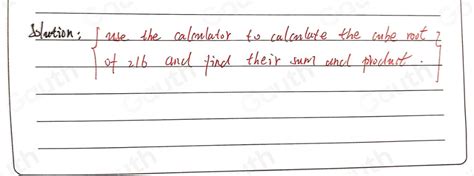 Solution: { use the calculator to calculate the cube root }
of 216 and find their sum and product.